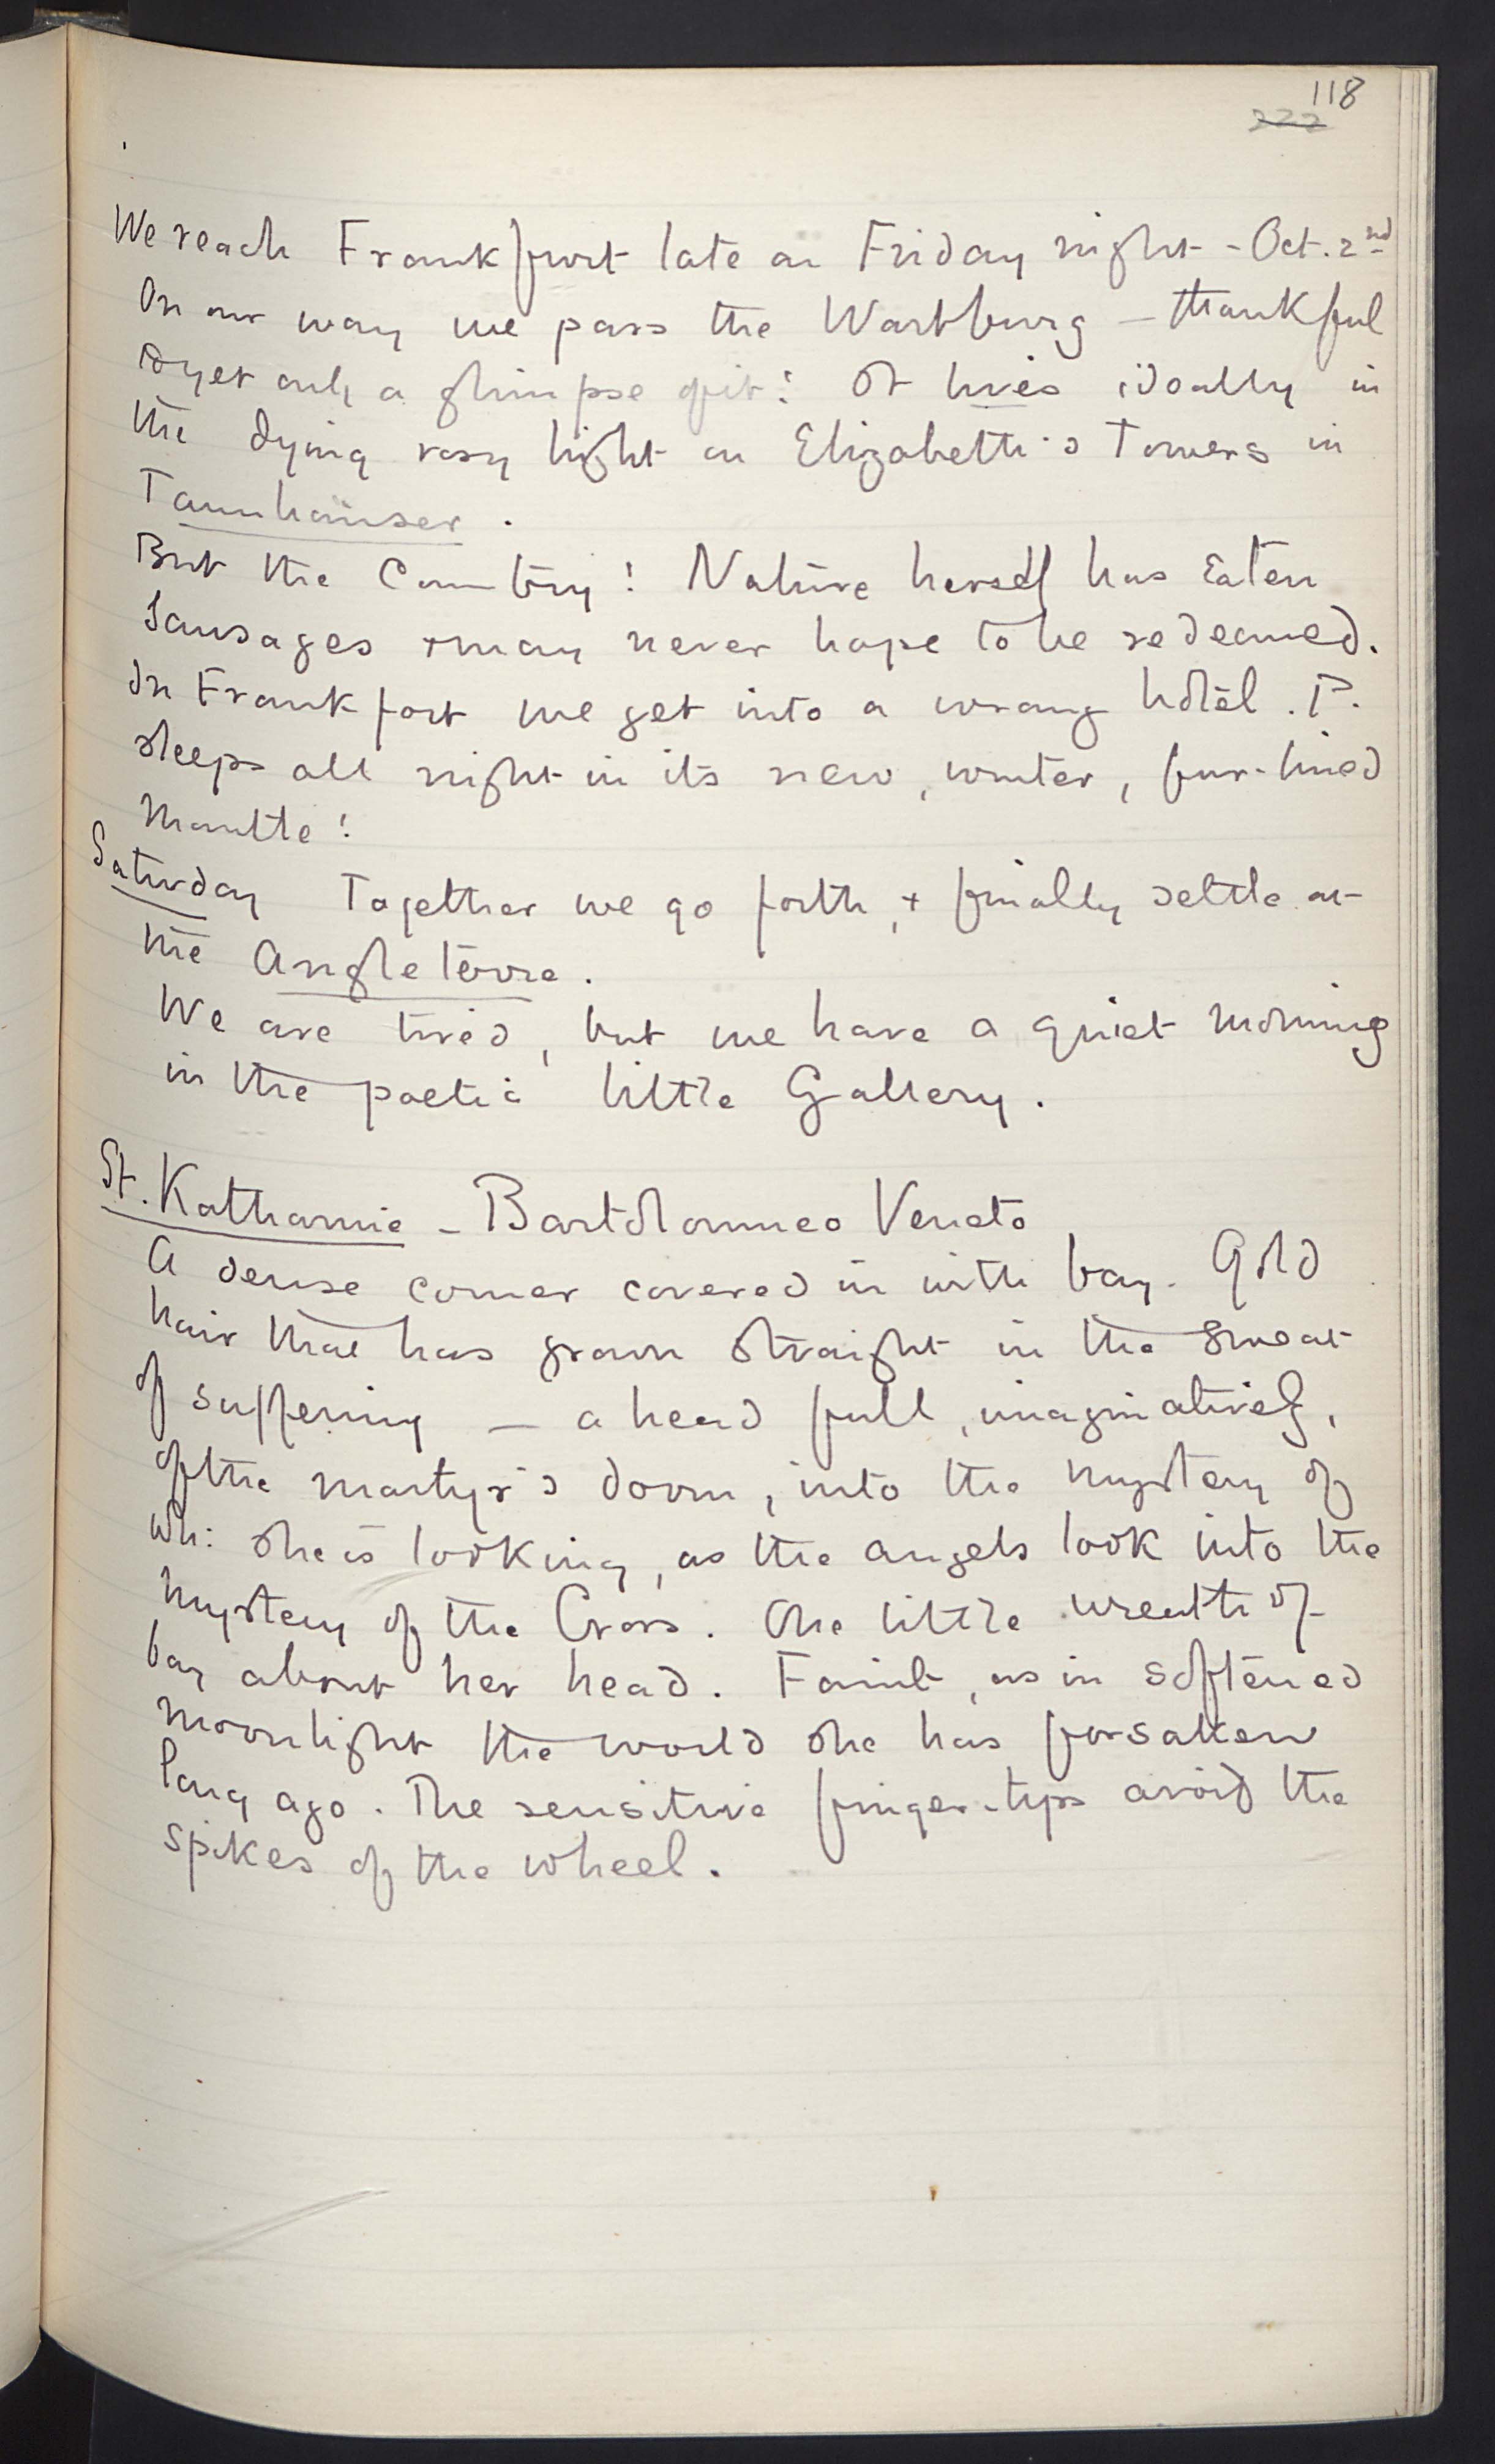 118
222
We reach Frankfurt late on Friday night - Oct. 2nd
On our way we pass the Wartburg - thankful
to get only a glimpse of it! It lives ideally in
the dying rosy light on Elizabeth's Towers in
Tannhaüser.
But the Country! Nature herself has Eaten
Sausages + may never hope to be redeemed.
In Frankfort we get into a wrong hôtel. P.
sleeps all night in its new, winter, fur-lined
Mantle!
Saturday Together we go forth, + finally settle at
the Angleterre.
We are tired, but we have a quiet morning
in the poetic little Gallery.
St. Katharine - Bartolommeo Veneto
A dense corner covered in with bay. Gold
hair that has grown straight in the sweat
of suffering - a head full, imaginatively,
of the martyr's doom, into the mystery of
wh: she is looking, as the angels look into the
mystery of the Cross. One little wreath of
bay about her head. Faint, as in softened
moonlight the world she has forsaken
long ago. The sensitive finger-tips avoid the
spikes of the wheel.